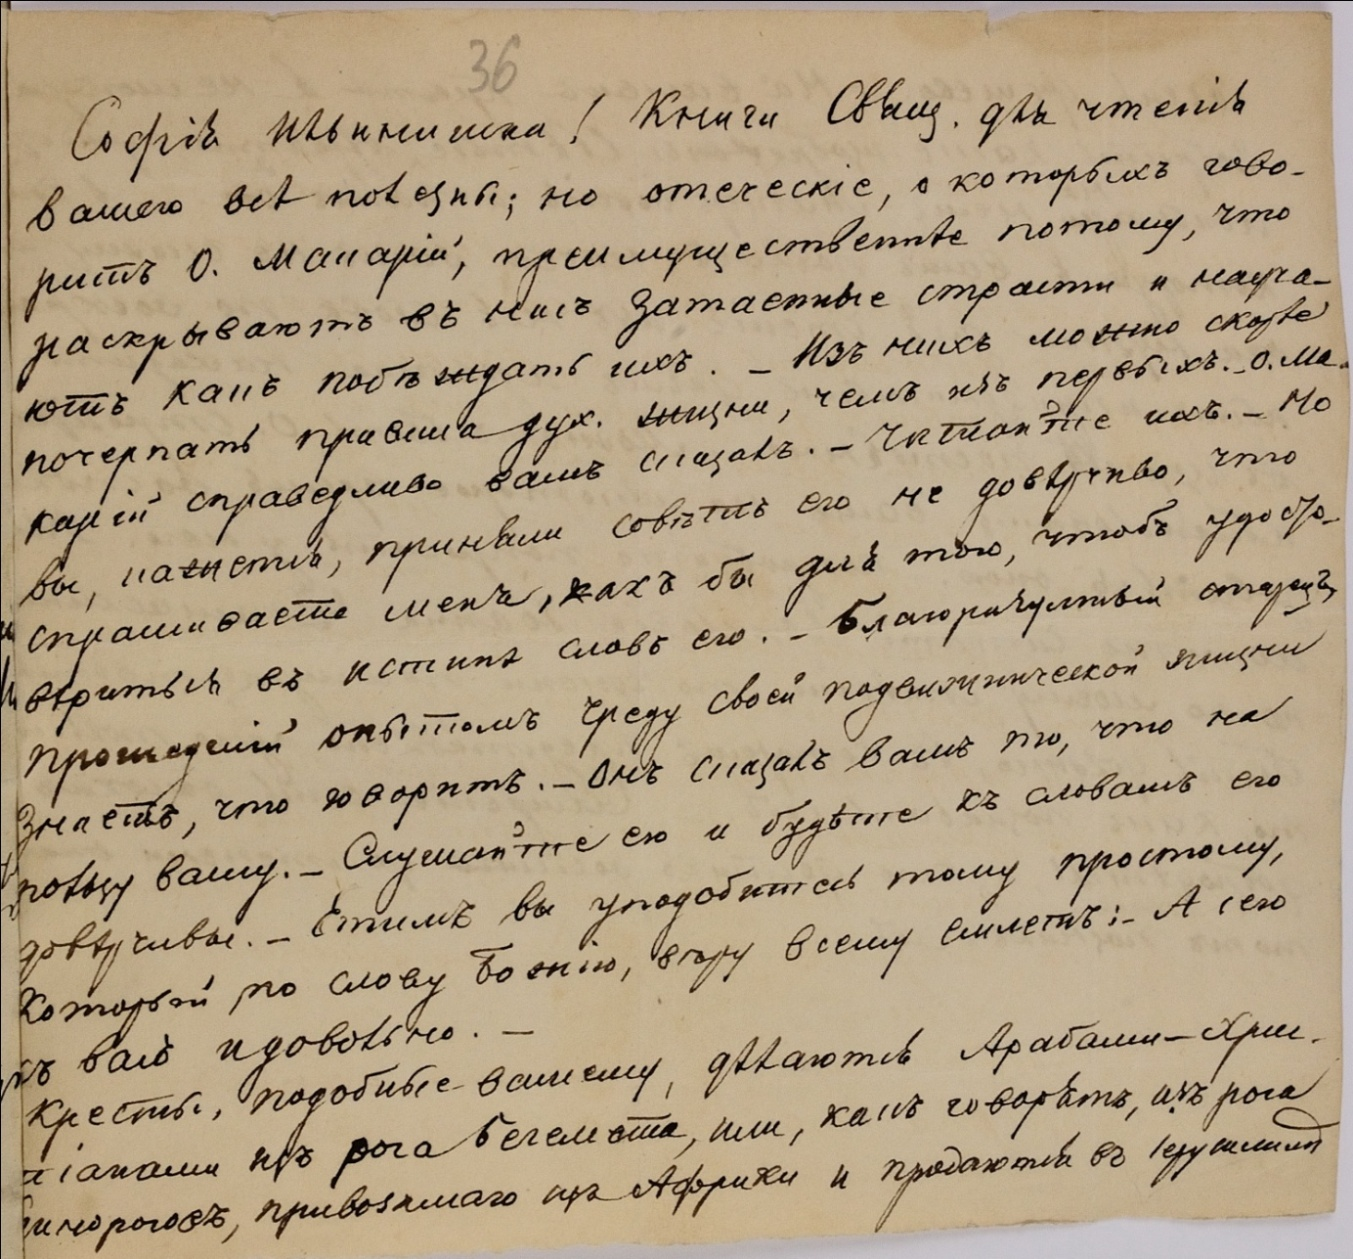 36
Софія Ильинишна! Книги Свящ. для чтенія
вашего всѣ полезны; но отеческіе, о которыхъ гово-
ритъ О. Макарій, преимущественнѣе потому, что
раскрываютъ въ насъ затаенные страсти и науча-
ютъ какъ побѣждать ихъ. – Изъ нихъ можно скорѣе
почерпать правила дух. жизни, чемъ изъ первыхъ. – О. Ма-
карій справедливо вамъ сказалъ. – Читайте ихъ. – Но
вы, кажется, приняли совѣтъ его не довѣрчиво, что
спрашиваете меня, какъ бы для того, чтобъ удосто-
вѣриться въ истинѣ словъ его. – Благоразумный старецъ,
прошедшій опытомъ чреду своей подвижнической жизни
знаетъ, что говоритъ. – Онъ сказалъ вамъ то, что на
пользу вашу. – Слушайте его и будьте къ словамъ его
довѣрчивы. – Етимъ вы уподобитесь тому простому,
который по слову Божію, вѣру всему емлетъ: – А сего
съ васъ и довольно. –
Кресты, подобные вашему, дѣлаются Арабами – Хри-
стіанами изъ рога бегемота, или, какъ говорятъ, изъ рога
единороговъ, привозимаго изъ Африки и продаются въ Іерусалимѣ